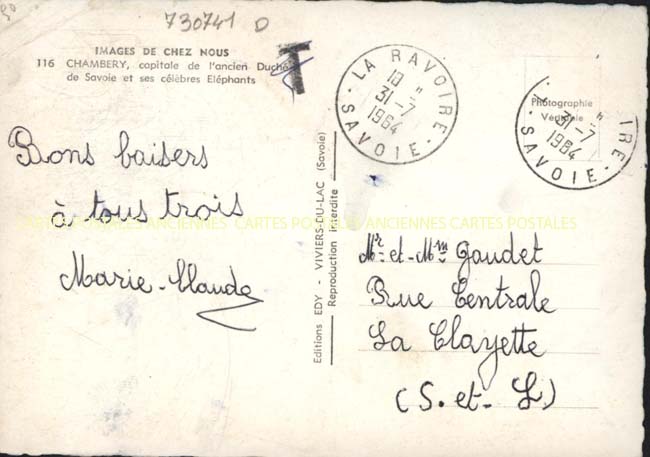 730741 D
IMAGES DE CHEZ NOUS
116 CHAMBERY, capitale de l'ancien Duché
de Savoie et ses célèbres Eléphants
T
LA RAVOIRE
10 H
31-7
1964
SAVOIE
Photographie
Véritable
IRE
31-7
1964
SAVOIE
Bons baisers
à tous trois
Marie-Claude
Editions EDY - VIVIERS-DU-LAC (Savoie)
Reproduction interdite
Mr et Mm Gaudet
Rue Centrale
La Clayette
(S. et. L)
CARTES POSTALES ANCIENNES CARTES POSTALES ANCIENNES CARTES POSTALES